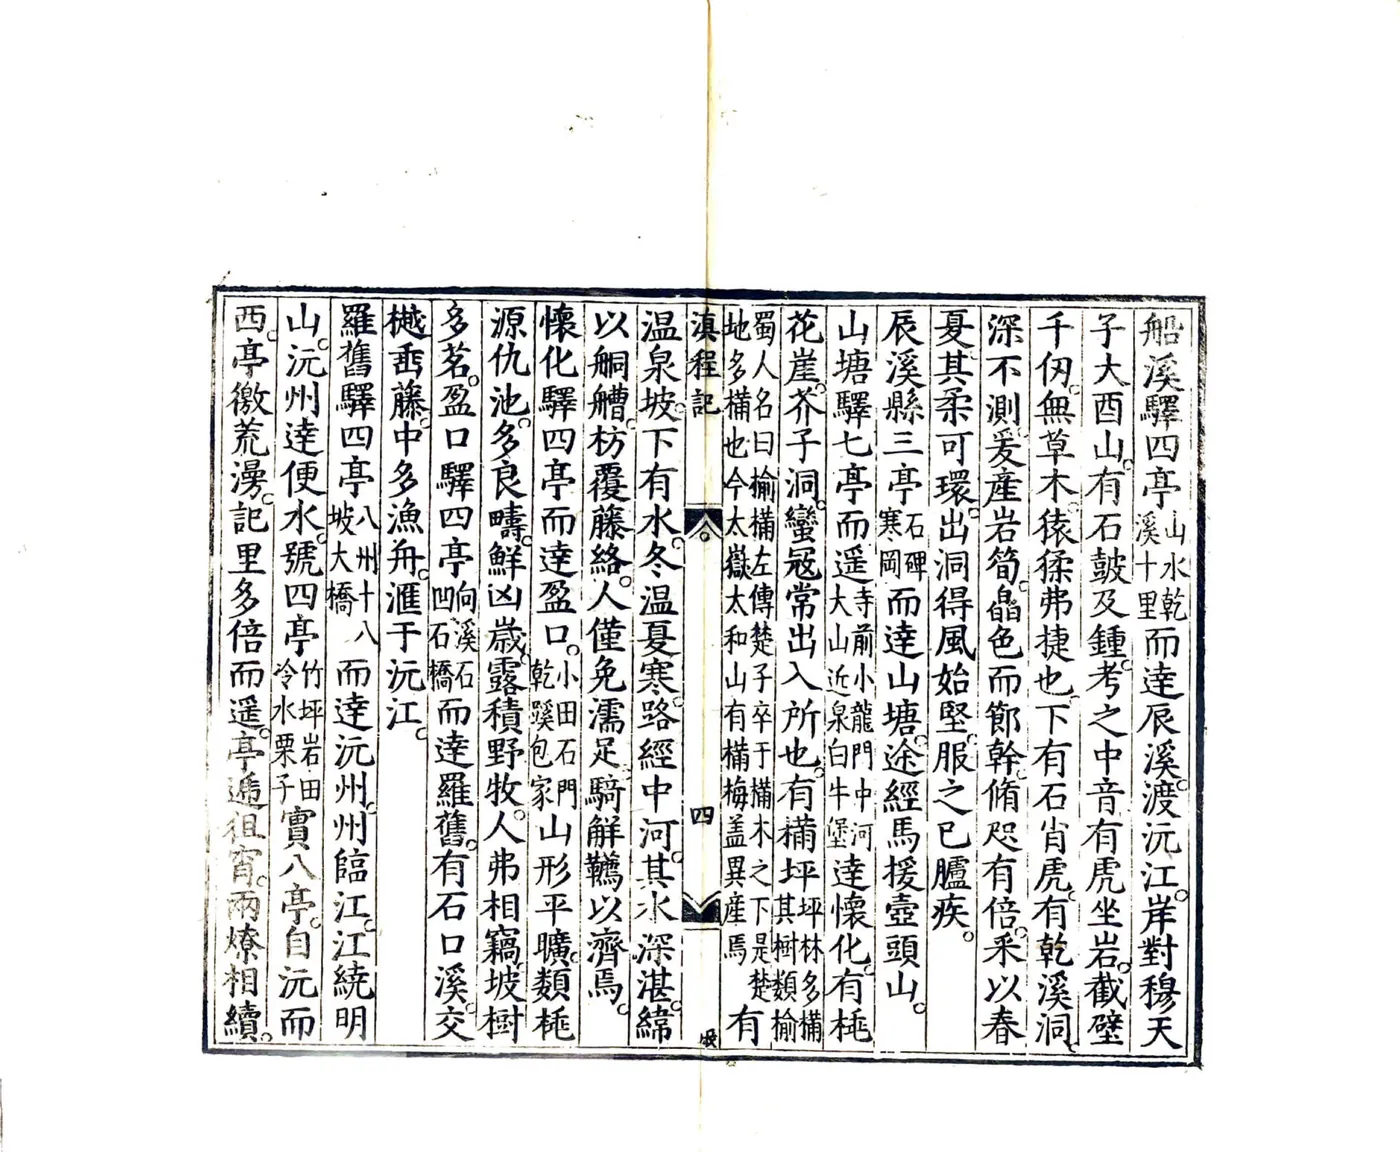 船溪驛四亭山水乾溪十里而達辰溪。渡沅江。岸對穆天
子大酉山。有石皷及鍾。考之中音有虎坐岩。截壁
千仭。無草木。猿猱弗捷也。下有石肖虎。有乾溪洞。
深不測。爰産岩筍。皛色而節幹。脩咫有倍。采以春
夏。其柔可環。出洞得風始堅。服之已臚疾。
辰溪縣三亭石碑寒岡而達山塘。途經馬援壺頭山。
山塘驛七亭而遥寺前小龍門中河大山近泉白牛堡達懷化。有𣏌
花崖。芥子洞。蠻冦常出入所也。有構坪坪林多構其樹類榆
蜀人名曰榆構左傳楚子卒于構木之下是楚地多構也今太嶽太和山有構梅盖異産焉有
滇程記 四
温泉坡。下有水。冬温夏寒。路經中河。其水深湛。緯
以舸艚。枋覆藤絡。人僅免濡足。騎解韉以濟焉。
懷化驛四亭而達盈口。小田石門乾蹊包家山形平曠。類桃
源仇池。多良疇。鮮凶歲。露積野牧。人弗相竊。坡樹
多茗。盈口驛四亭向溪石凹石橋而達羅舊。有石口溪。交
樾垂藤。中多漁舟。滙于沅江。
羅舊驛四亭八州十八坡大橋而達沅州。州臨江。江繞明
山。沅州達便水。號四亭竹坪岩田冷水栗子實八亭。自沅而
西。亭徼荒漫。記里多倍而遥。亭遞徂宵。兩燎相續。